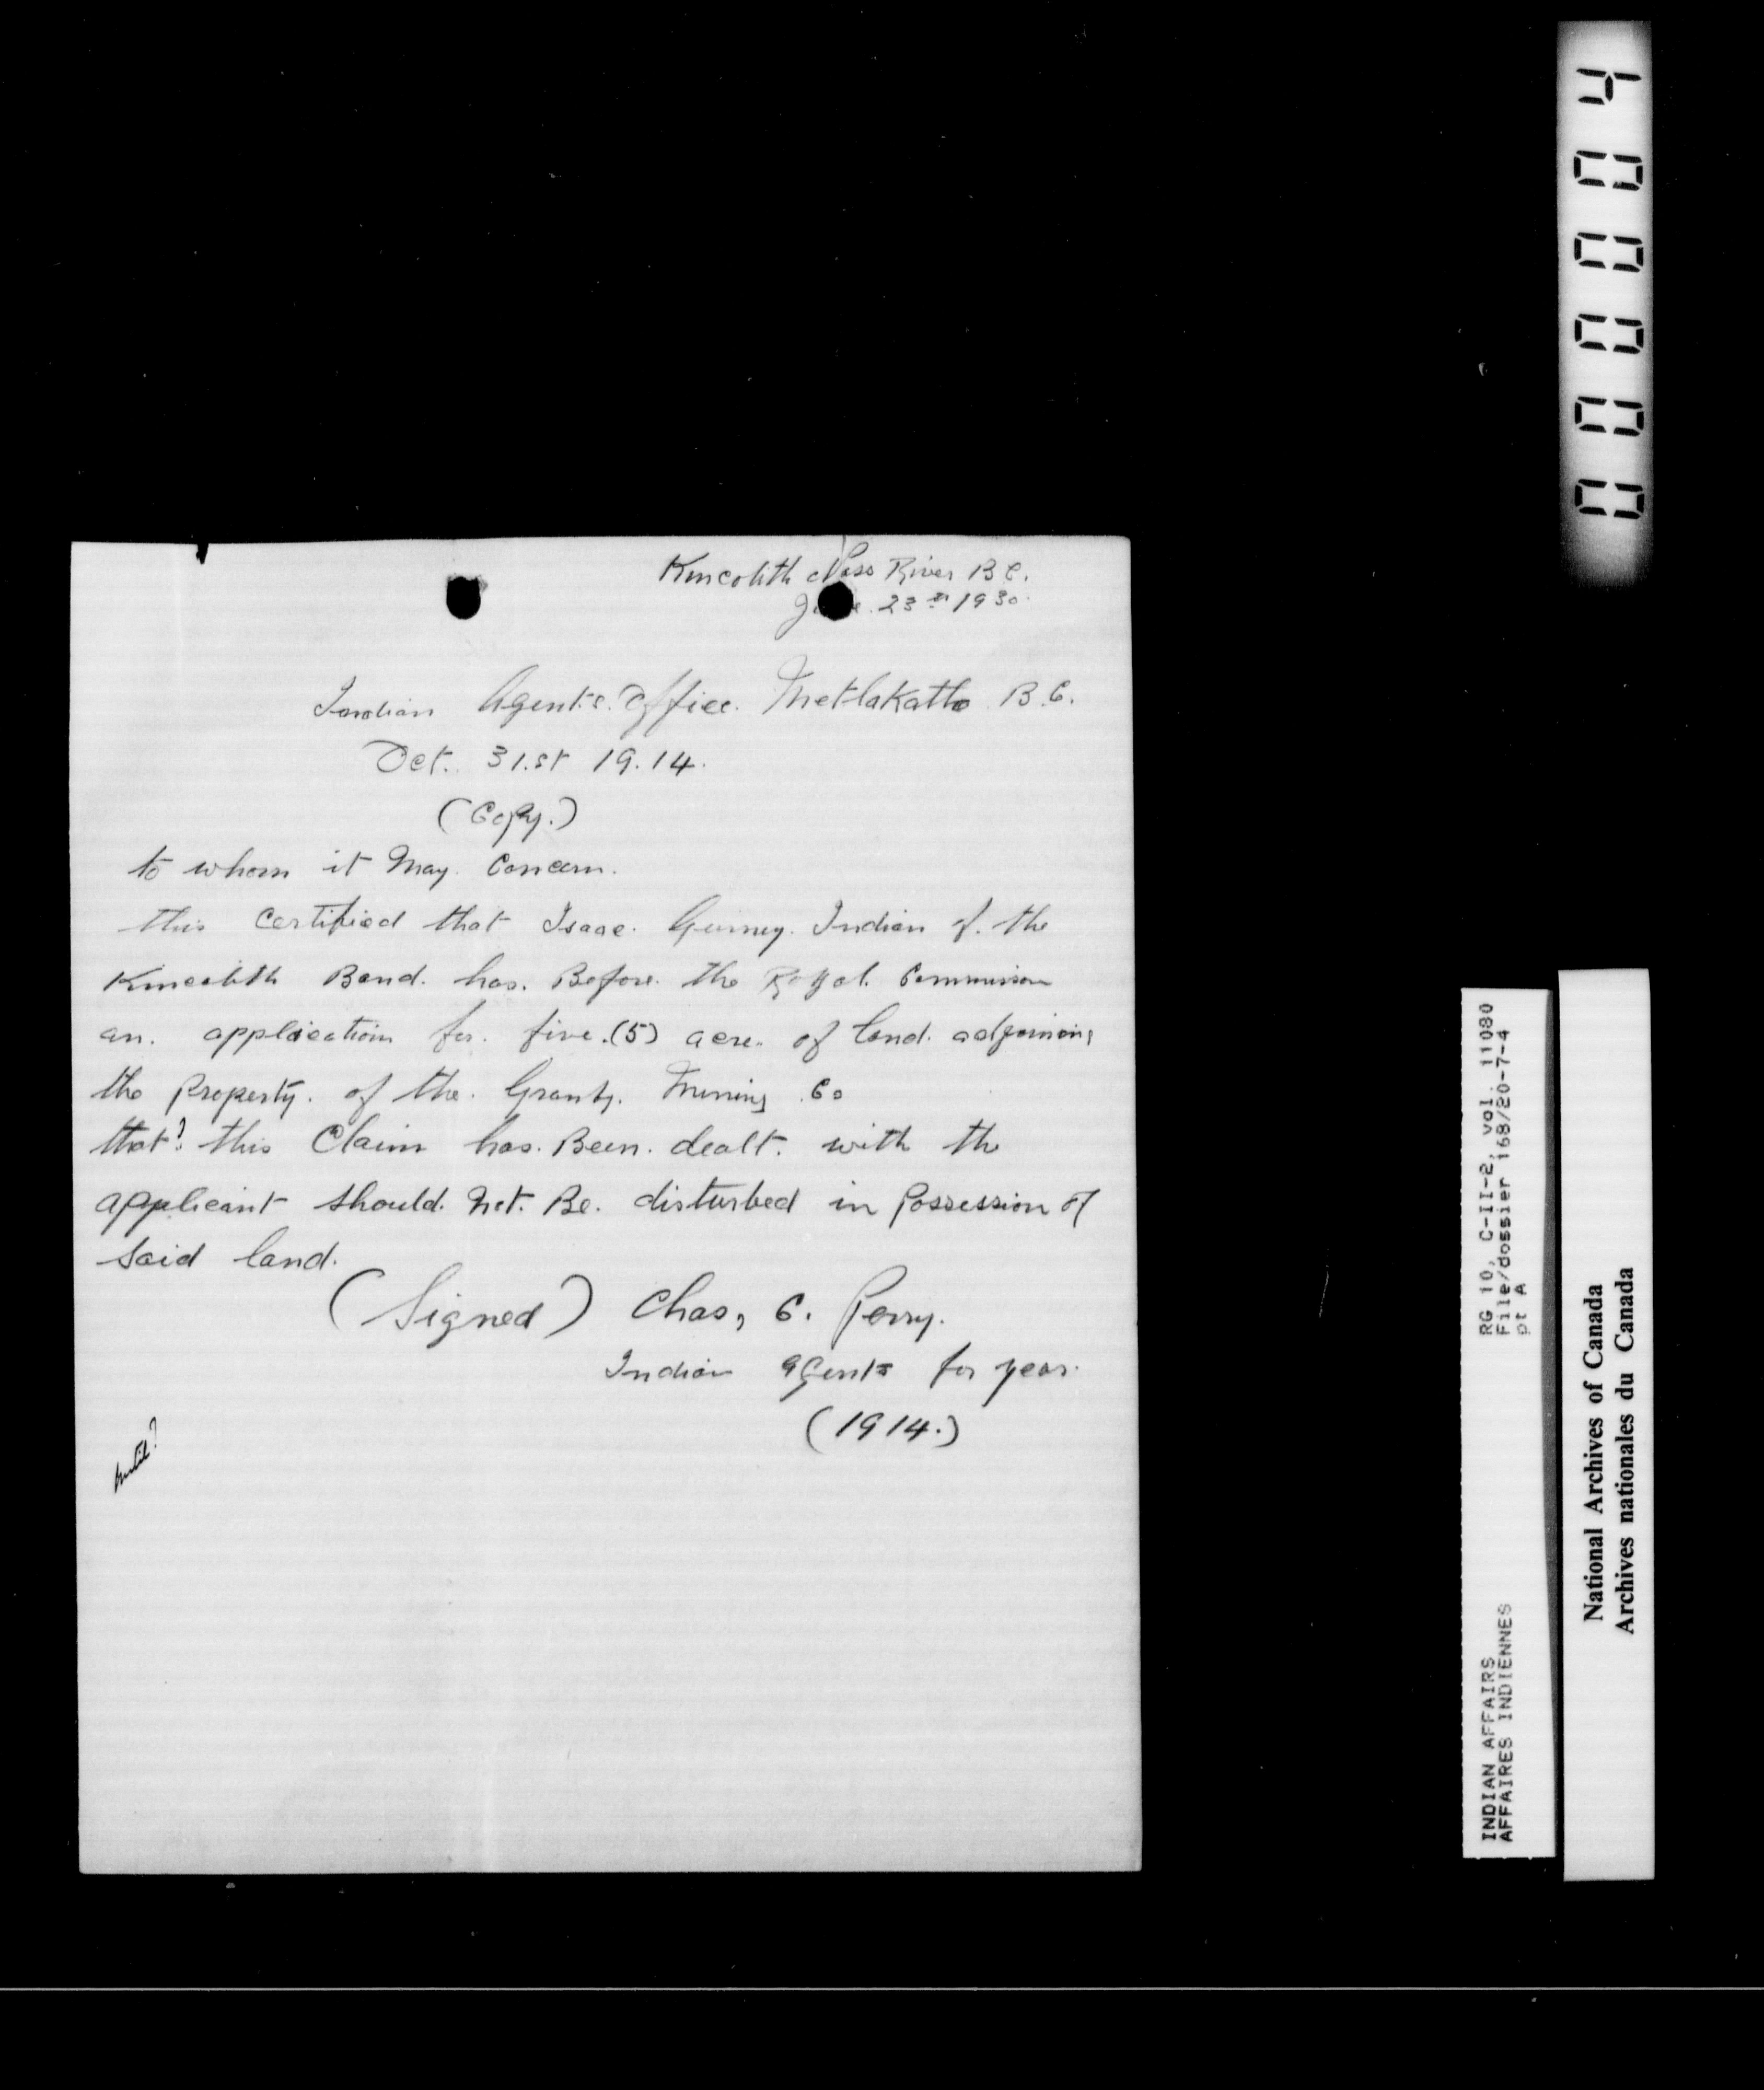 Kincolith Nass River B C.
23rd 1930.
Indian Agents. Office. Metlakatla B.C.
Oct. 31.st 19.14.
(Copy.)
to whom it May. Concern.
this Certified that Isaac. Gurney. Indian of. the
Kincolith Band. has. Before. the Royal. Commission
an. application for. five.(5) acre. of land. adjoining
the Property. of the. Granby. Mining Co
that? this Claim has. Been. dealt. with the
applicant should. Not. Be. disturbed in Possession of
said land.
(Signed) Chas, C. Perry.
Indian agents for year.
(1914.)
until?
000004
RG 10, C-II-2, vol. 11080
File/dossier 168/20-7-4
pt A
INDIAN AFFAIRS
AFFAIRES INDIENNES
National Archives of Canada
Archives nationales du Canada